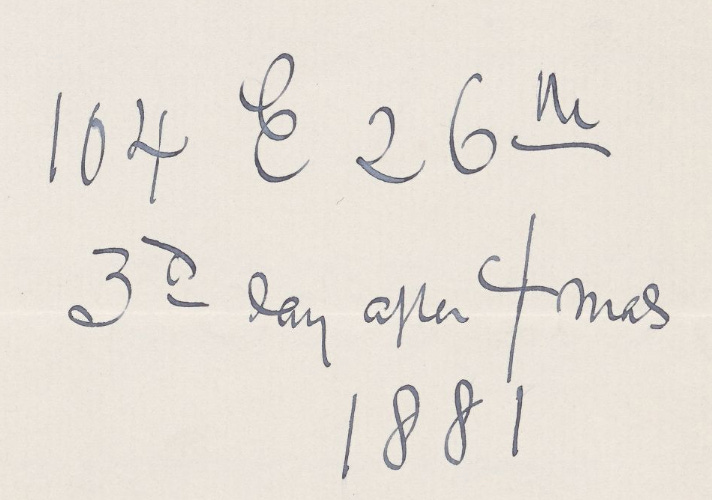 104 E 26th
3d day after Xmas
1881